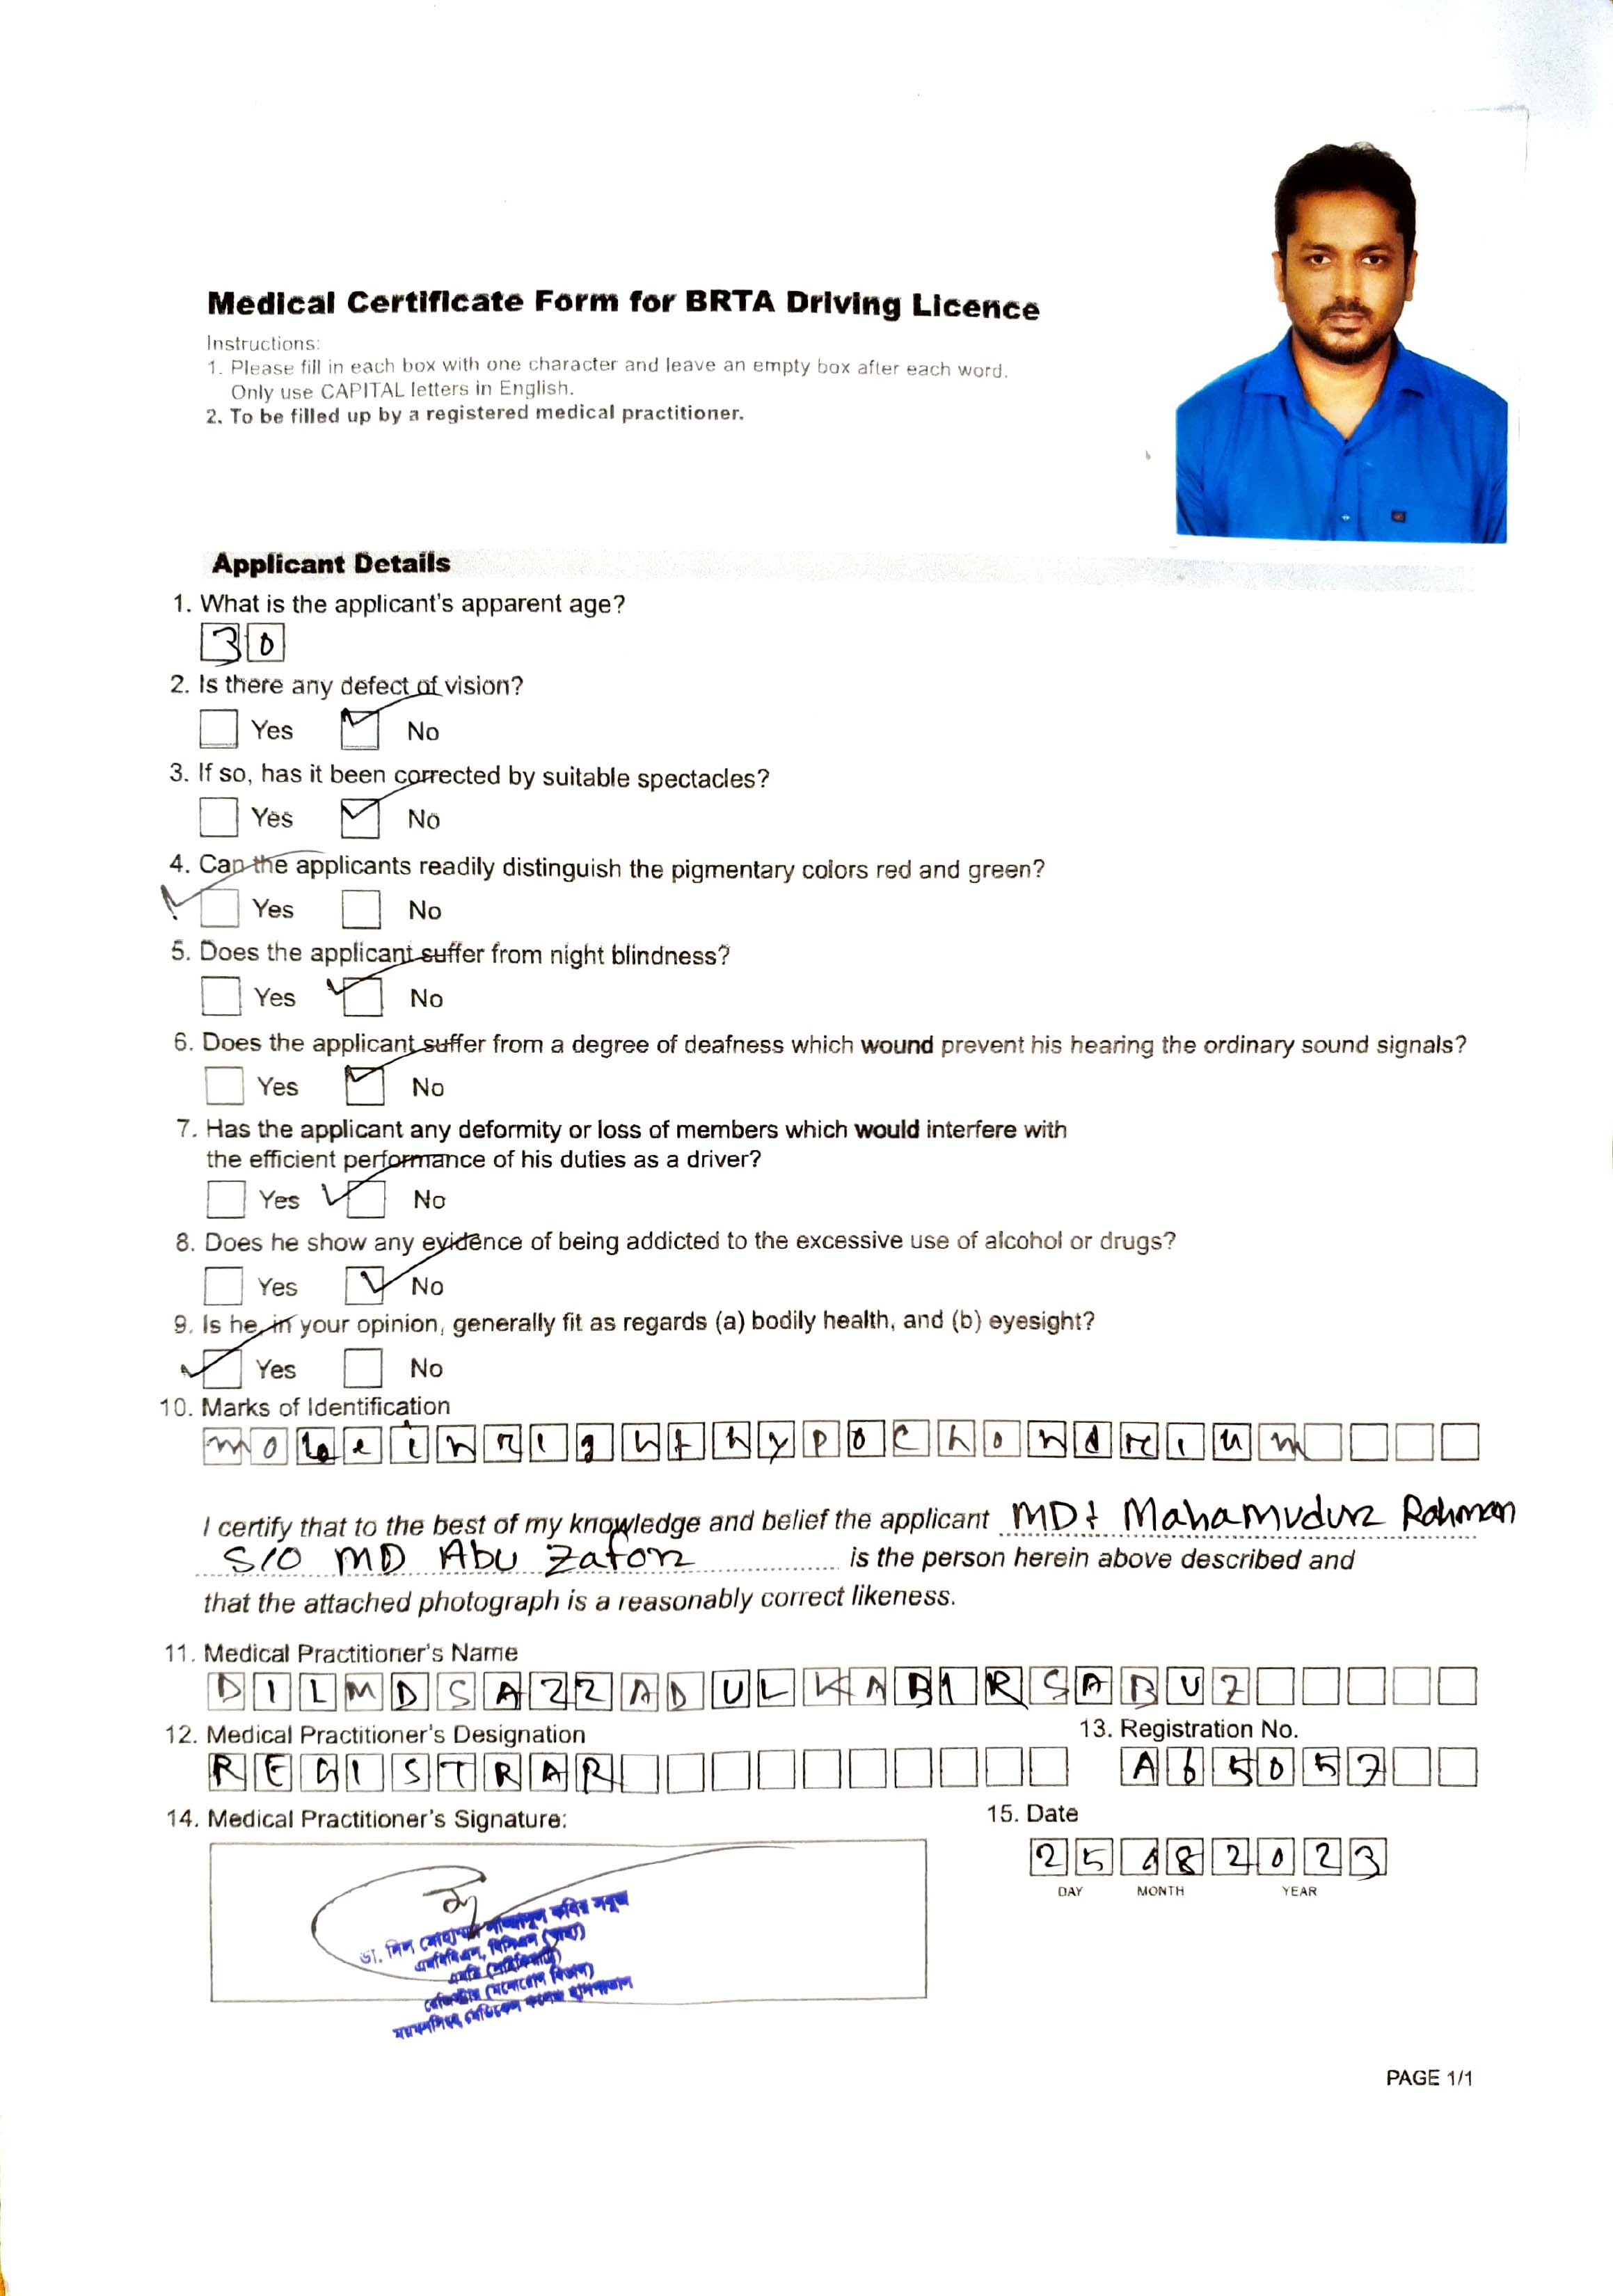 Medical Certificate Form for BRTA Driving Licence
Instructions:
1. Please fill in each box with one character and leave an empty box after each word.
Only use CAPITAL letters in English.
2. To be filled up by a registered medical practitioner.
Applicant Details
1. What is the applicant's apparent age?
30
2. Is there any defect of vision?
Yes No
3. If so, has it been corrected by suitable spectacles?
Yes No
4. Can the applicants readily distinguish the pigmentary colors red and green?
Yes No
5. Does the applicant suffer from night blindness?
Yes No
6. Does the applicant suffer from a degree of deafness which wound prevent his hearing the ordinary sound signals?
Yes No
7. Has the applicant any deformity or loss of members which would interfere with
the efficient performance of his duties as a driver?
Yes No
8. Does he show any evidence of being addicted to the excessive use of alcohol or drugs?
Yes No
9. Is he, in your opinion, generally fit as regards (a) bodily health, and (b) eyesight?
Yes No
10. Marks of Identification
mole in right hypochondrium
I certify that to the best of my knowledge and belief the applicant MD Mahamudur Rahman
S/O MD Abu Zafor is the person herein above described and
that the attached photograph is a reasonably correct likeness.
11. Medical Practitioner's Name
DILMDSAZZADULKABIRSABUZ
12. Medical Practitioner's Designation 13. Registration No.
REGISTRAR A65057
14. Medical Practitioner's Signature: 15. Date
25 08 2023
DAY MONTH YEAR
ডা. দিল মোহাম্মদ সাজ্জাদুল কবির সবুজ
এমবিবিএস, বিসিএস (স্বাস্থ্য)
এমডি
রেজিস্ট্রার (মনোরোগ বিভাগ)
ময়মনসিংহ মেডিকেল কলেজ হাসপাতাল
PAGE 1/1